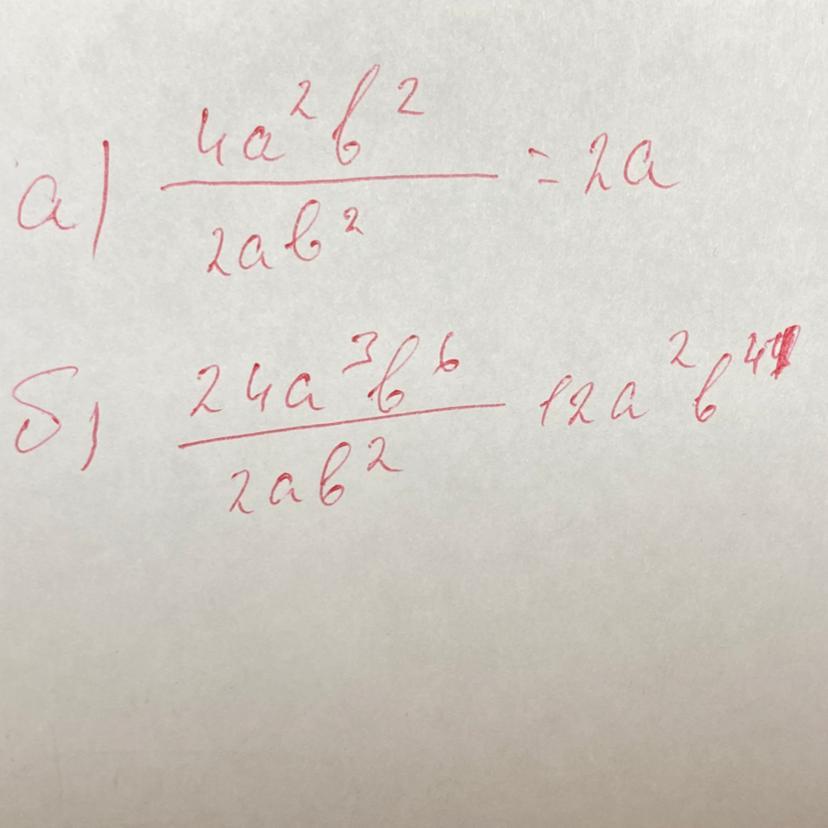 а) 4a²b² / 2ab² = 2a
б) 24a³b⁶ / 2ab² 12a²b⁴